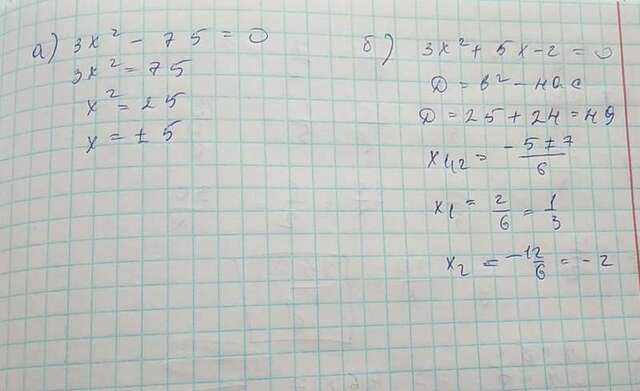 а) 3x² - 75 = 0
3x² = 75
x² = 25
x = ± 5
б) 3x² + 5x - 2 = 0
Д = в² - 4ас
Д = 25 + 24 = 49
x₁,₂ = (-5 ± 7)/6
x₁ = 2/6 = 1/3
x₂ = -12/6 = -2